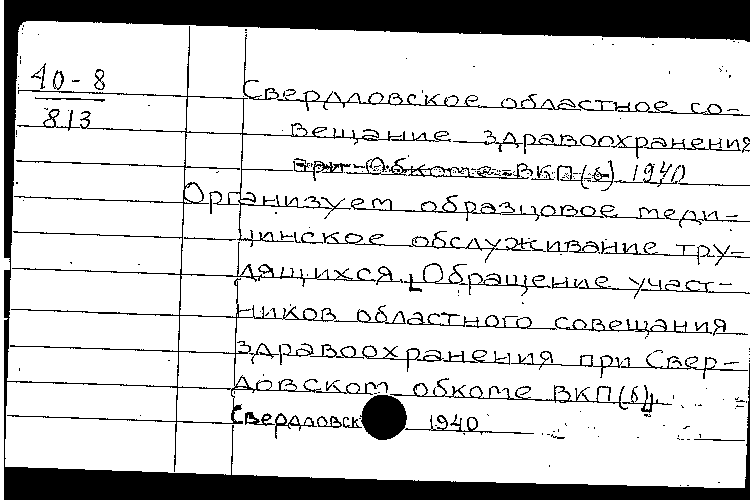 40-8
813
Свердловское областное со-
вещание здравоохранения
при Обкоме ВКП(б) 1940
Организуем образцовое меди-
цинское обслуживание тру-
дящихся. [Обращение участ-
ников областного совещания
здравоохранения при Свер-
довском обкоме ВКП(б)].
Свердловск 1940